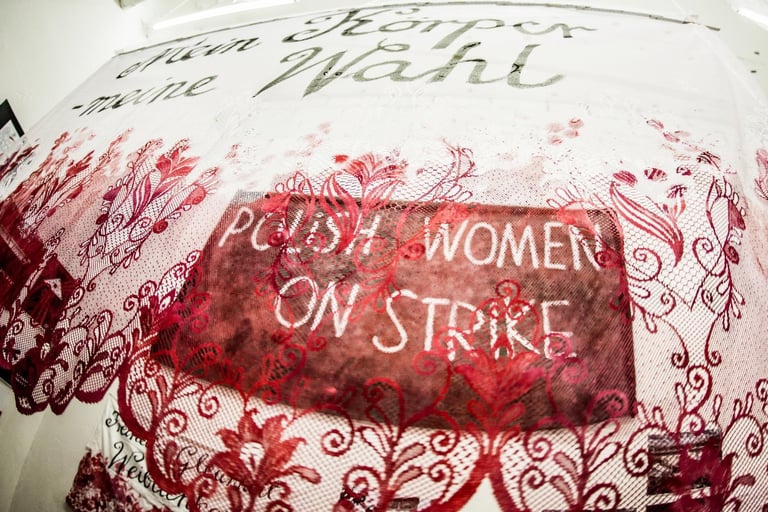 Mein Körper
-meine Wahl
POLISH WOMEN
ON STRIKE